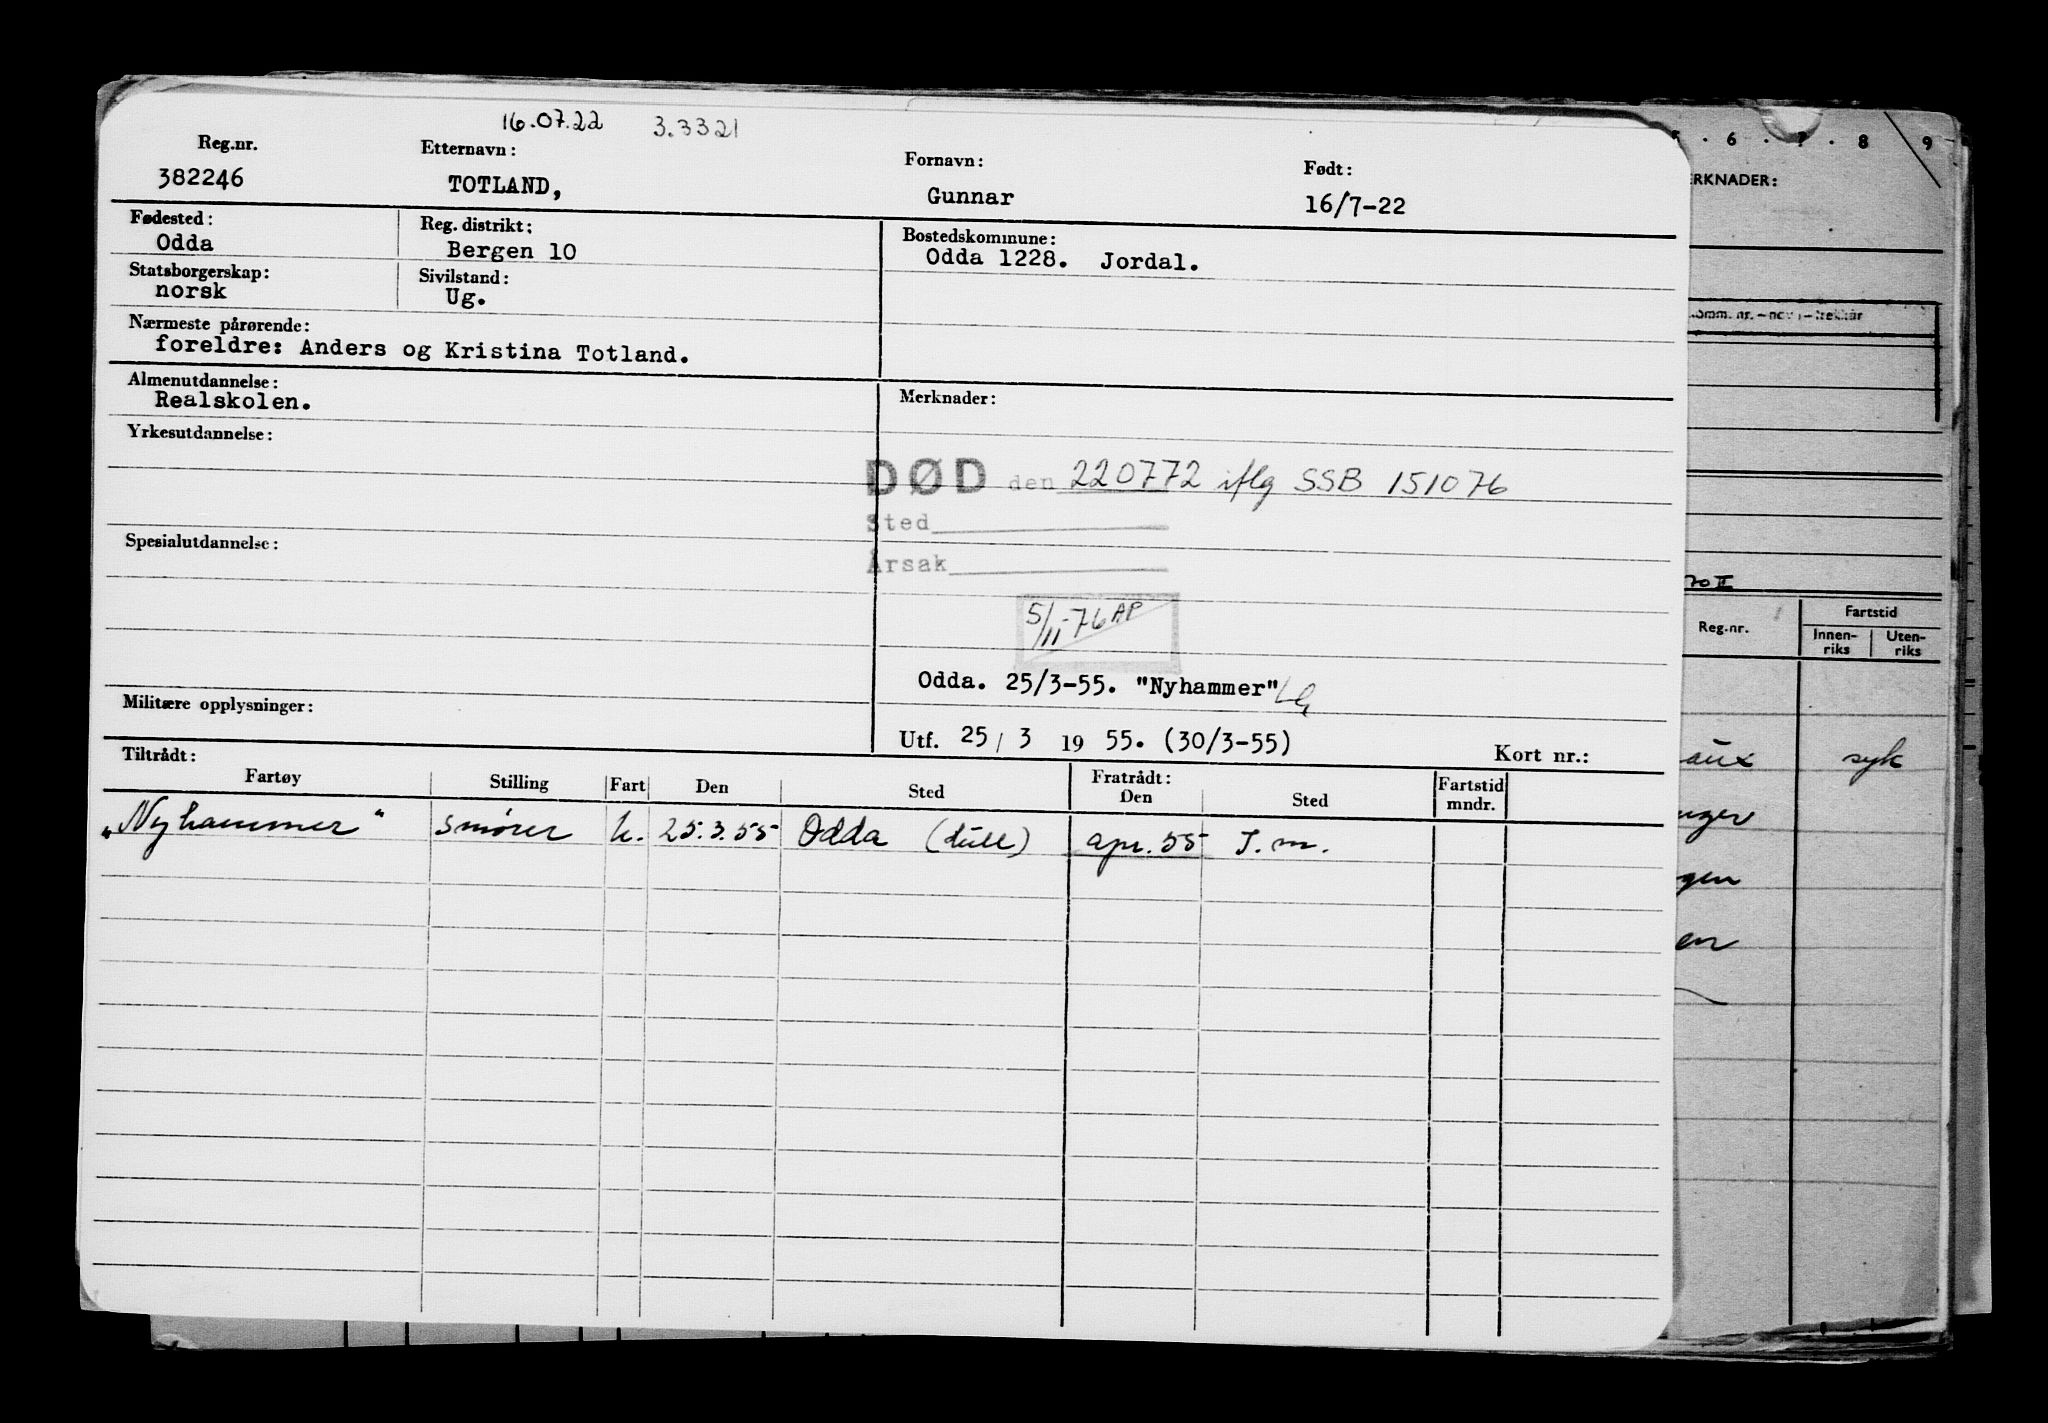 16.07.22 3.3321
Reg.nr. Etternavn: Fornavn: Født:
382246 TOTLAND, Gunnar 16/7-22
Fødested: Reg. distrikt: Bostedskommune:
Odda Bergen 10 Odda 1228. Jordal.
Statsborgerskap: Sivilstand:
norsk Ug.
Nærmeste pårørende:
foreldre: Anders og Kristina Totland.
Almenutdannelse: Merknader:
Realskolen.
Yrkesutdannelse:
DØD den 220772 iflg SSB 151076
Sted
Årsak
Spesialutdannelse:
5/11-76 AP
Odda. 25/3-55. "Nyhammer"
Militære opplysninger:
Utf. 25/3 1955. (30/3-55) Kort nr.:
Tiltrådt: Fratrådt:
Fartøy Stilling Fart Den Sted Den Sted Fartstid mndr.
"Nyhammer" smører u. 25.3.55 Odda (dull) apr. 55 I.m.
6 . 7 . 8 9
ERKNADER:
70 II
Reg.nr. Fartstid
Innen-riks Uten-riks
aux syk
nger
gen
en